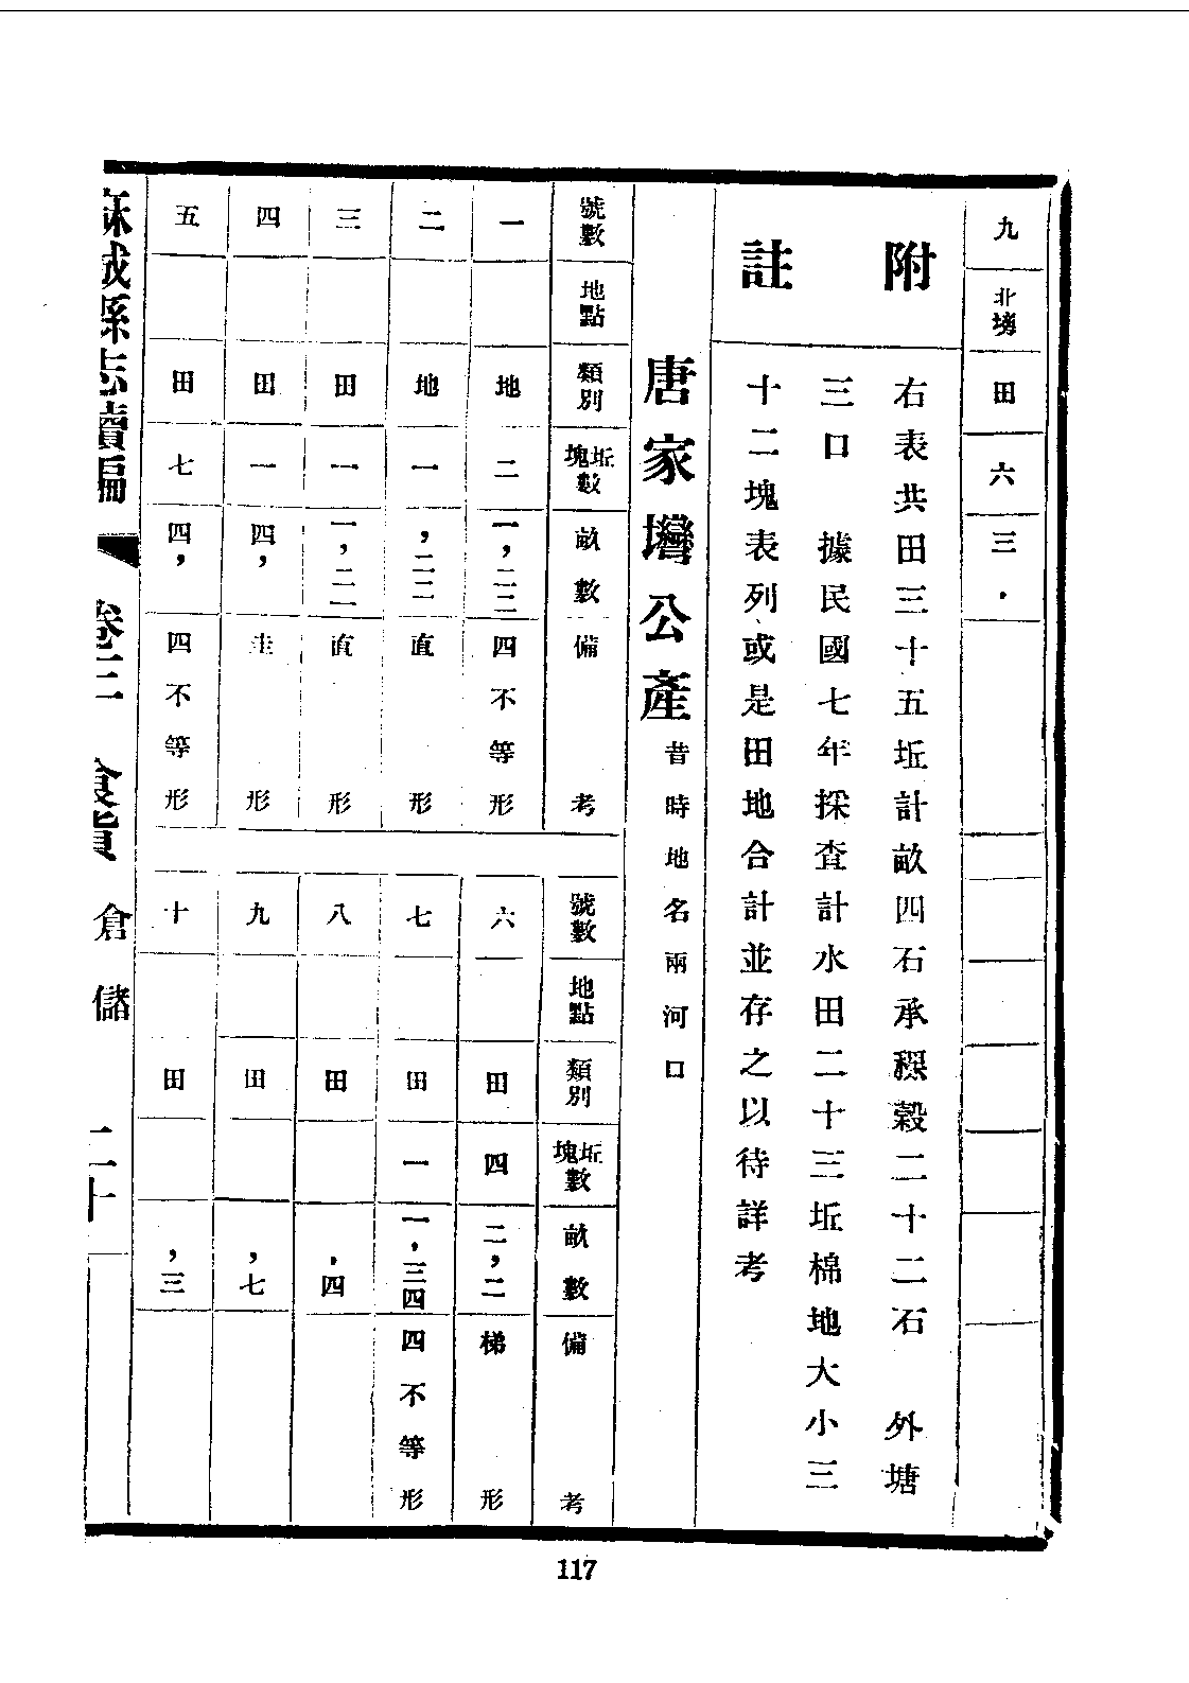 九 北塝 田 六 三.
附註
右表共田三十五坵計畝四石承稞穀二十二石 外塘
三口 據民國七年採查計水田二十三坵棉地大小三
十二塊表列或是田地合計並存之以待詳考
唐家灣公產 昔時地名兩河口
號數 地點 類別 坵塊數 畝數 備考
一 地 二 一,二三 四不等形
二 地 一 ,二二 直形
三 田 一 一,二二 直形
四 田 一 四, 圭形
五 田 七 四, 四不等形
號數 地點 類別 坵塊數 畝數 備考
六 田 四 二,二 梯形
七 田 一 一,三四 四不等形
八 田 .四
九 田 ,七
十 田 ,三
麻城縣志續編 卷三 食貨 倉儲 二十
117